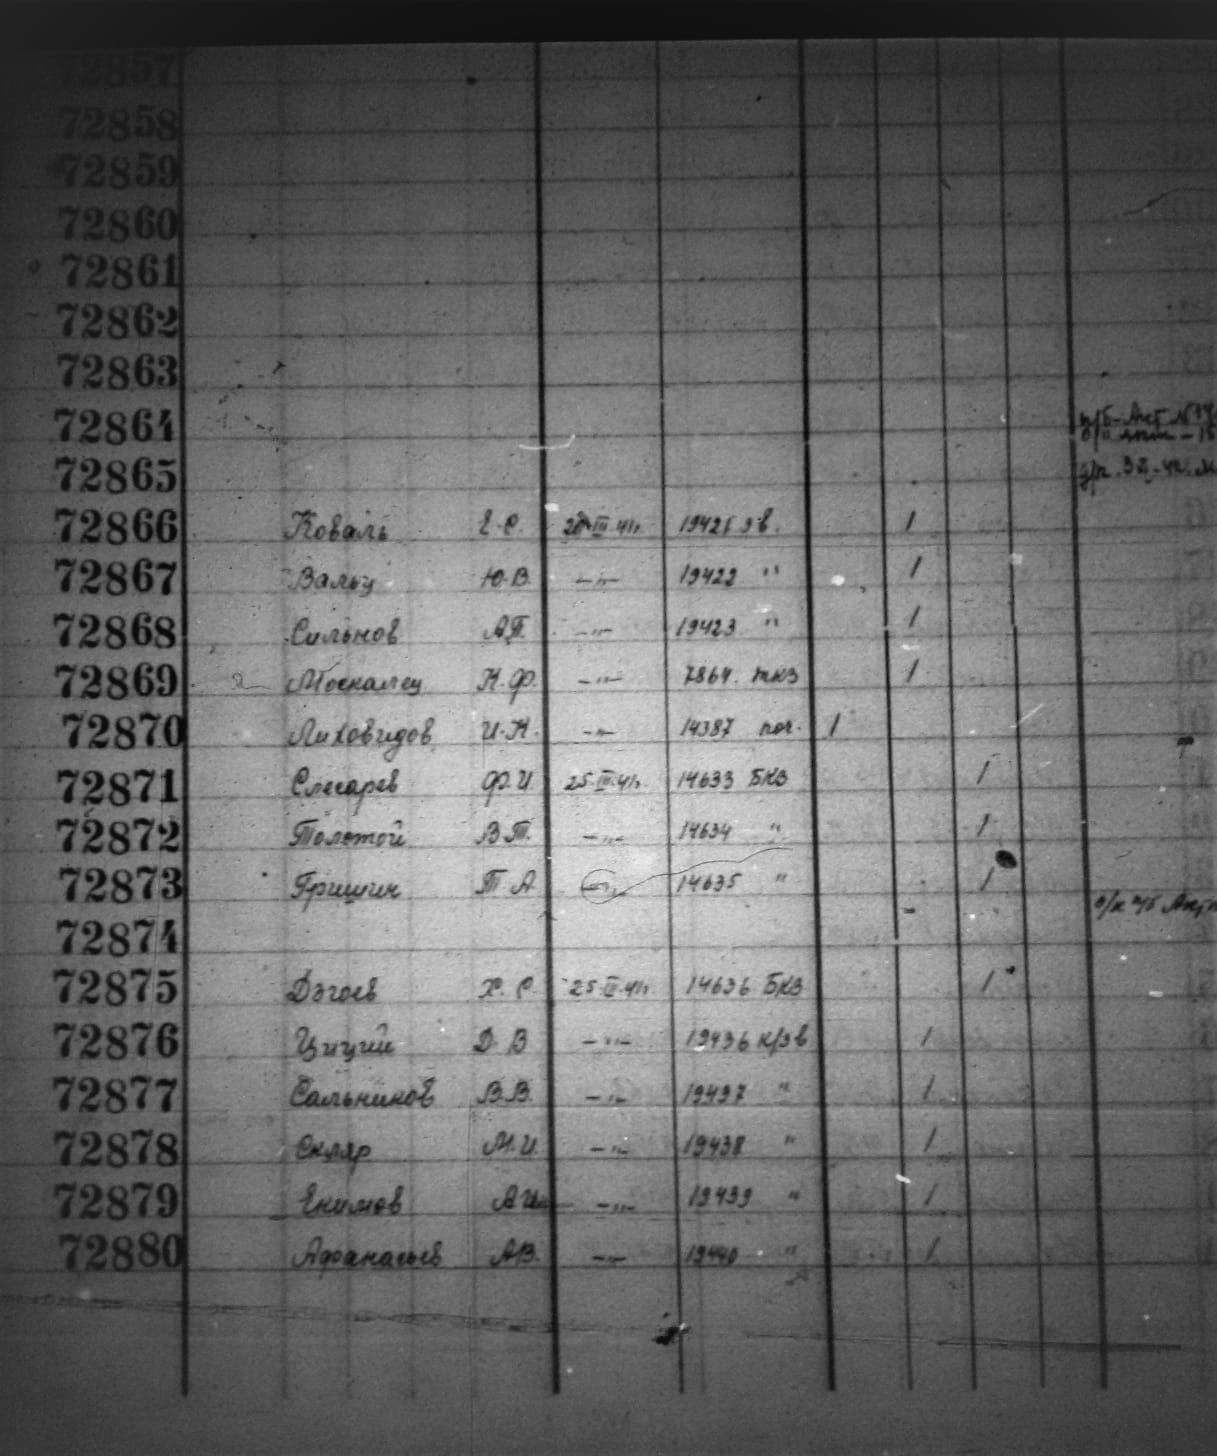 72857
72858
72859
72860
72861
72862
72863
72864
72865
72866 Коваль Е.С. III.41г. 19421 эв. 1
72867 Вальц Ю.В. —„— 19422 " 1
72868 Сильнов А.П. —„— 19423 " 1
72869 Москалец Н.Ф. —„— 7864. ткз 1
72870 Лиховидов И.Н. —„— 14387 поч. 1
72871 Слесарев Ф.И. 25-III.41г. 14633 БКВ 1
72872 Толстой В.Т. —„— 14634 " 1
72873 Гришин Т.А. —„— 14635 " 1
72874
72875 Дзгоев Х.С. 25-III.41г. 14636 БКВ 1
72876 Циции Д.В. —„— 19436 к/эв 1
72877 Сальников В.В. —„— 19437 " 1
72878 Скляр М.И. —„— 19438 " 1
72879 Екимов А.И. —„— 19439 " 1
72880 Афанасьев А.В. —„— 19440 " 1